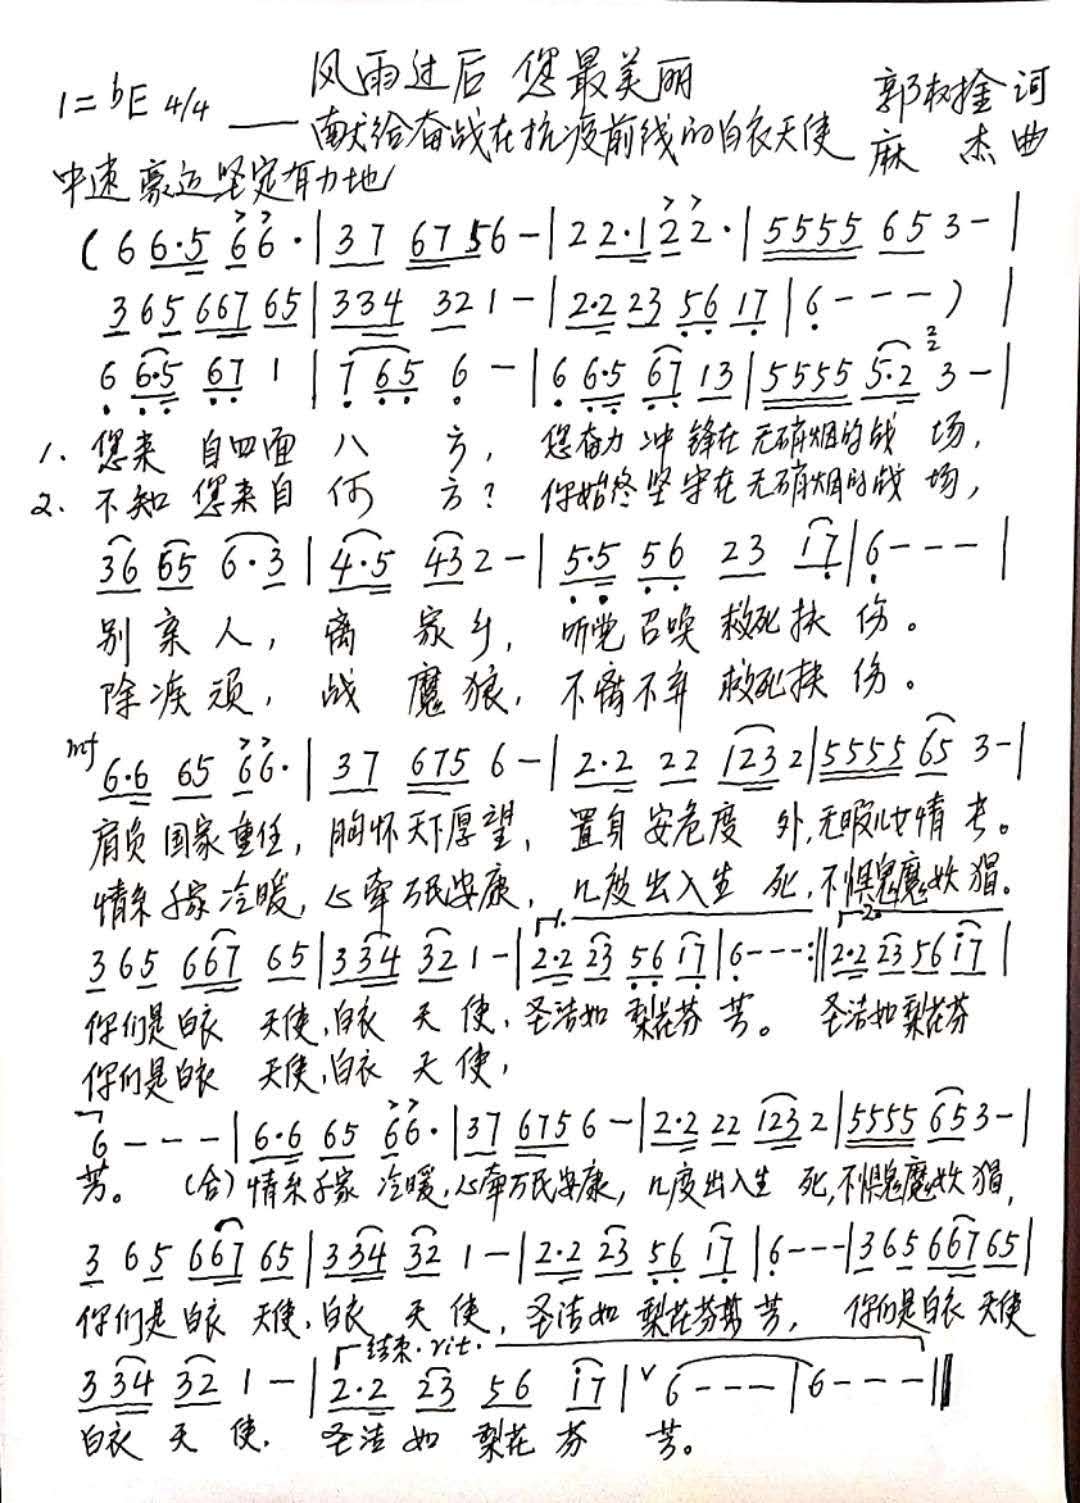 风雨过后 您最美丽
1=bE 4/4 ——献给奋战在抗疫前线的白衣天使 郭 词
麻 杰 曲
中速 豪迈坚定有力地
(6 6·5 6 6·|3 7 6 7 5 6 -|2 2·1 2 2·|5 5 5 5 6 5 3 -|
3 6 5 6 6 7 6 5|3 3 4 3 2 1 -|2·2 2 3 5 6 1 7|6 - - -)|
6 6·5 6 7 1|7 6 5 6 -|6 6·5 6 7 1 3|5 5 5 5 5·2 3 -|
1. 您来 自四面 八 方, 您奋力 冲锋在无硝烟的战 场,
2. 不知 您来自 何 方? 你始终坚守在无硝烟的战 场,
3 6 6 5 6·3|4·5 4 3 2 -|5·5 5 6 2 3 1 7|6 - - -|
别 亲 人, 离 家 乡, 听党召唤 救死扶 伤。
除疾 顽, 战 魔 狼, 不离不弃 救死扶 伤。
mf 6·6 6 5 6 6·|3 7 6 7 5 6 -|2·2 2 2 1 2 3 2|5 5 5 5 6 5 3 -|
肩负 国家重任, 胸怀天下厚望, 置身 安危度 外,无暇儿女情 长。
情系千家冷暖, 心牵万民安康, 几度出入生 死,不惧鬼魔妖猖。
3 6 5 6 6 7 6 5|3 3 4 3 2 1 -|1. 2·2 2 3 5 6 1 7|6 - - -:‖2. 2·2 2 3 5 6 i 7|
你们是白衣 天使,白衣 天 使, 圣洁如 梨花芬 芳。 圣洁如梨花芬
你们是白衣 天使,白衣 天 使,
6 - - -|6·6 6 5 6 6·|3 7 6 7 5 6 -|2·2 2 2 1 2 3 2|5 5 5 5 6 5 3 -|
芳。 (合)情系千家 冷暖,心牵万民安康, 几度出入生 死,不惧鬼魔妖猖,
3 6 5 6 6 7 6 5|3 3 4 3 2 1 -|2·2 2 3 5 6 1 7|6 - - -|3 6 5 6 6 7 6 5|
你们是白衣 天使,白衣 天 使, 圣洁如 梨花芬 芳, 你们是白衣 天使
结束. rit.
3 3 4 3 2 1 -|2·2 2 3 5 6 i 7|V 6 - - -|6 - - -‖
白衣 天 使, 圣洁 如 梨花 芬 芳。